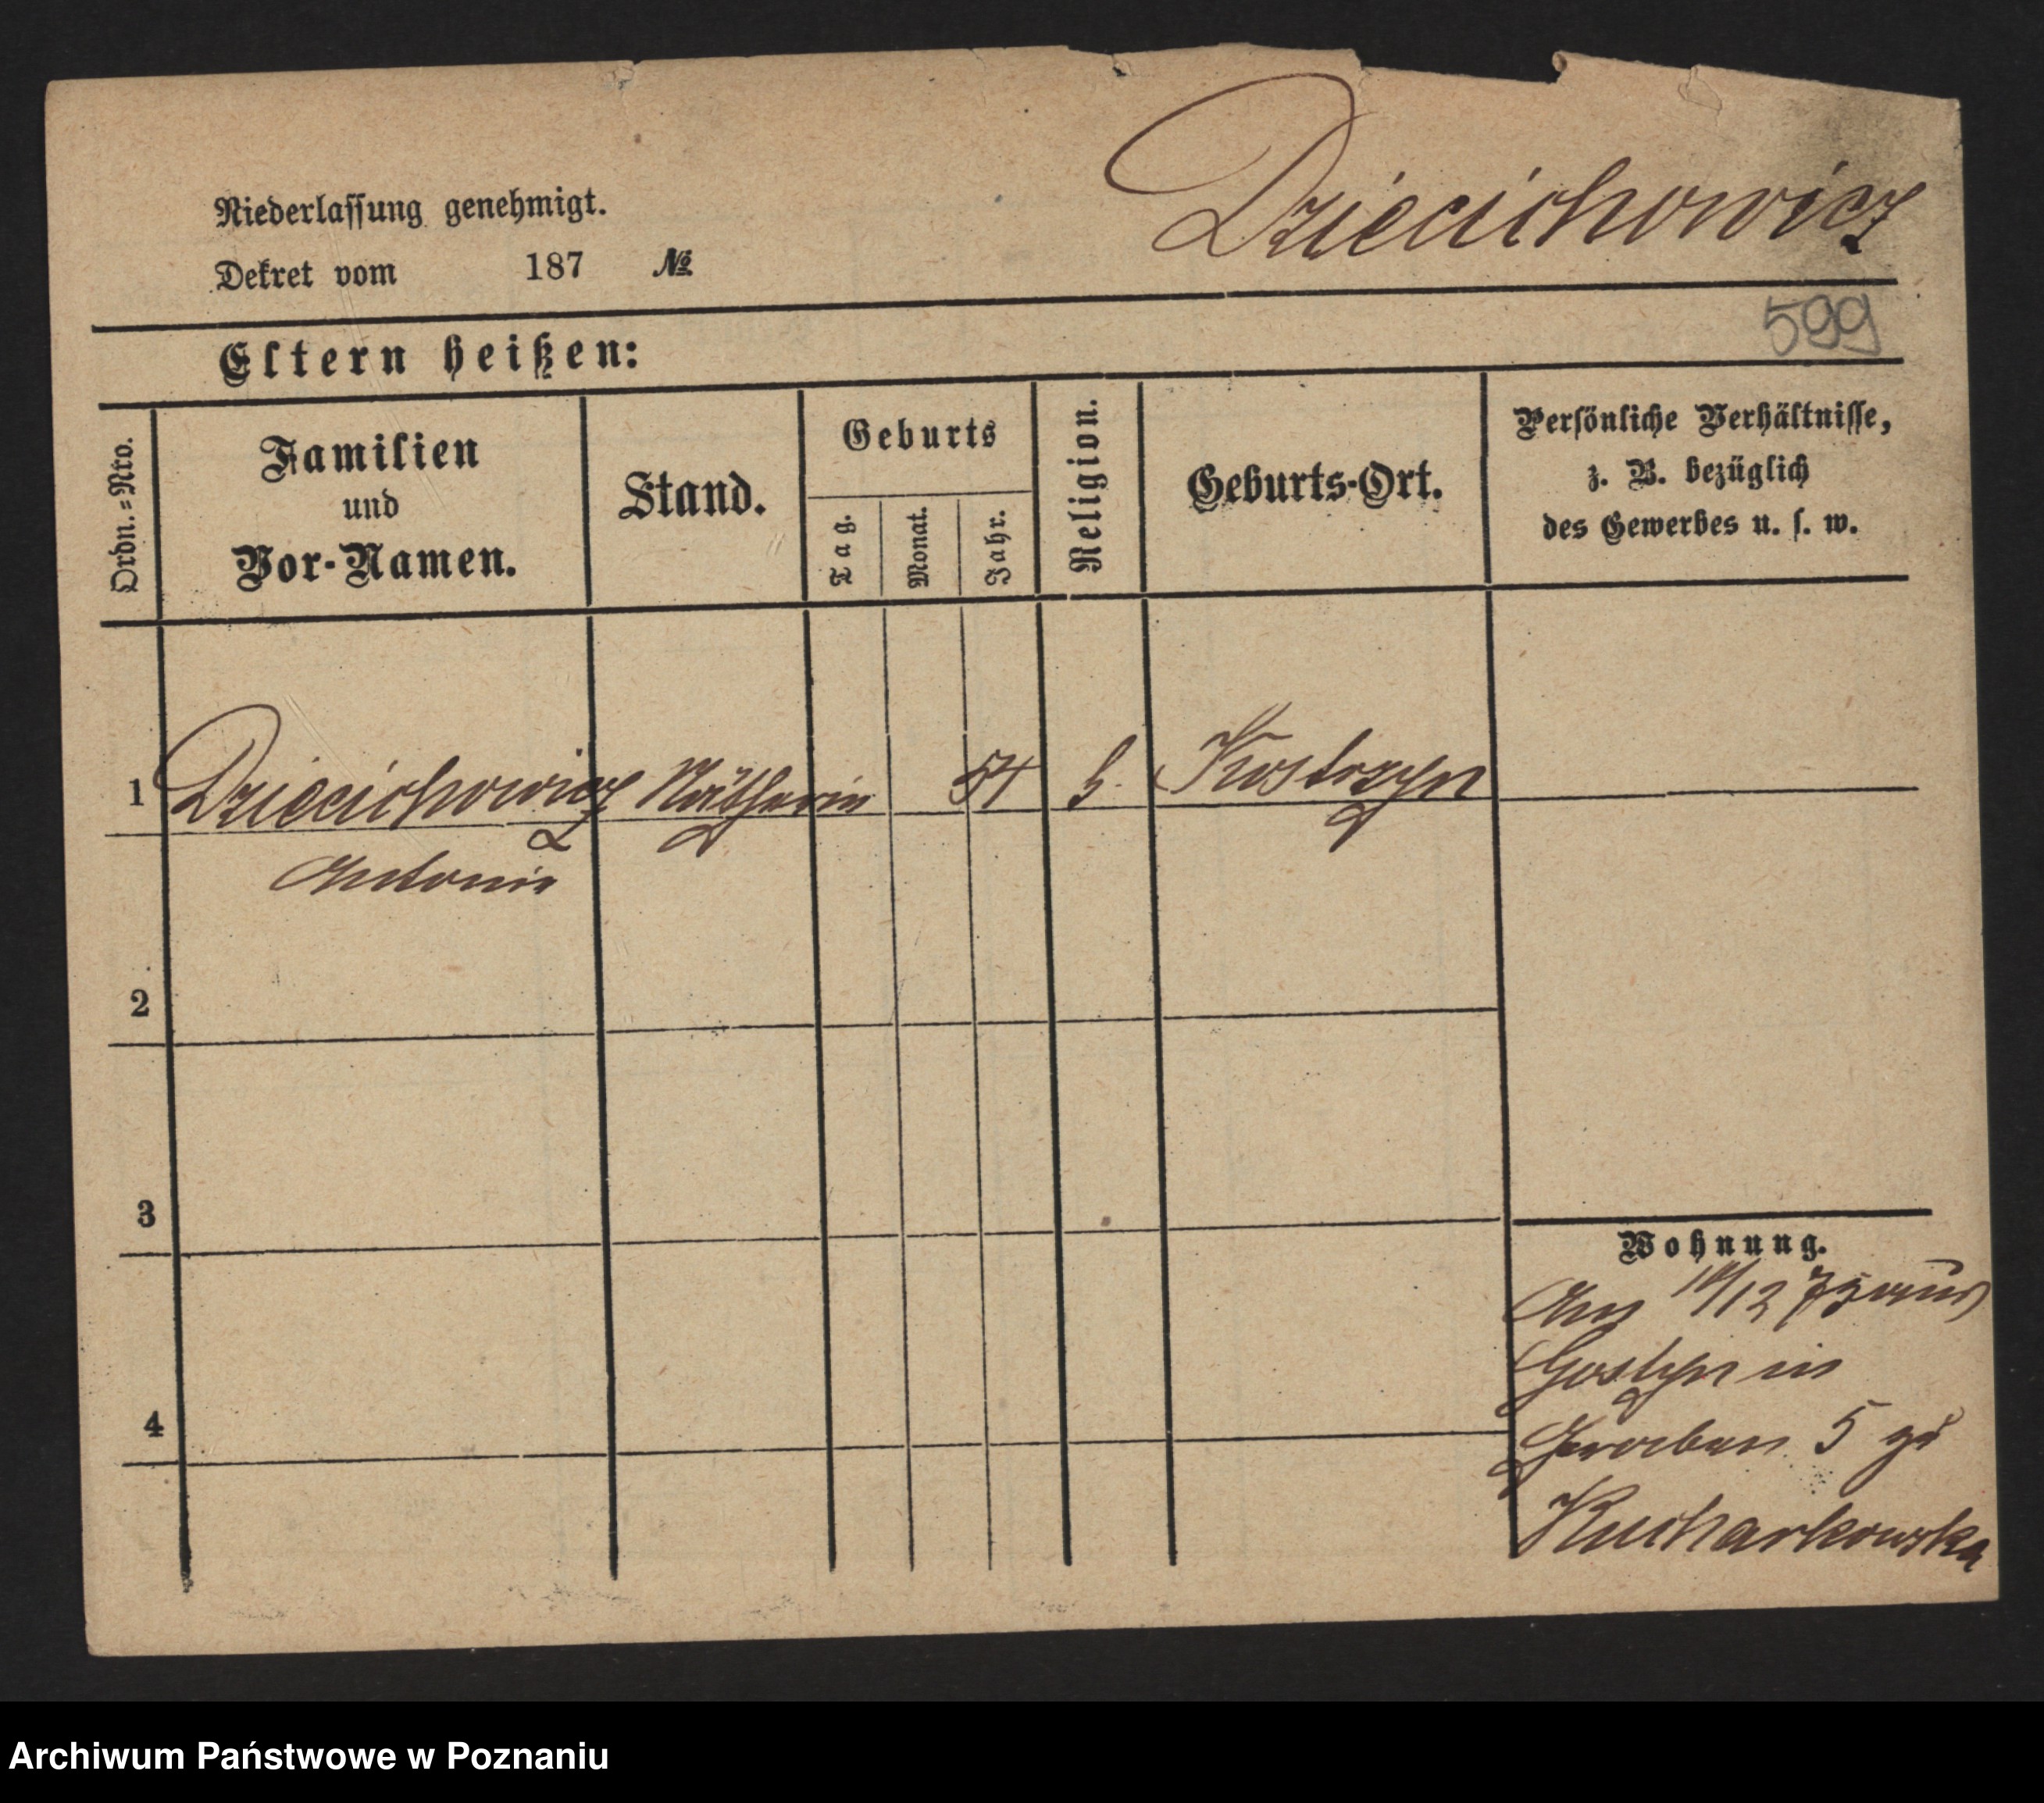 Dziecichowicz
Niederlassung genehmigt.
Dekret vom 187 №
599
Eltern heißen:
Ordn.=Nro.
Familien
und
Vor-Namen.
Stand.
Geburts
Tag.
Monat.
Jahr.
Religion.
Geburts-Ort.
Persönliche Verhältnisse,
z. B. bezüglich
des Gewerbes u. s. w.
1 Dziecichowicz Nätherin 54 k. Kostrzyn
Antonie
2
3
4
Wohnung.
Am /12 75 aus
Gostyn in
Graben 5 zu
Kucharkowska
Archiwum Państwowe w Poznaniu